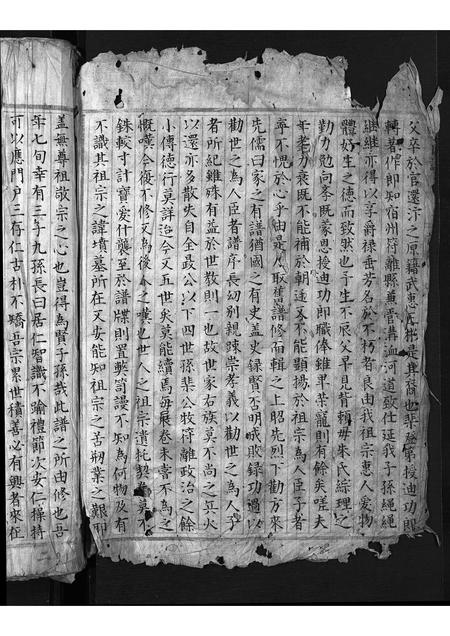 父卒於官還汴之原籍武惠王彬是其裔也榮登第授迪功郎
轉著作郎知宿州符離縣黃河道致仕延我子孫繩繩
繼繼亦得以享爵祿垂芳名於不朽者良由我祖宗惠人愛物
體好生之德而致然也予生不辰父早見背賴母朱氏綜理之
勤力勉向學既蒙恩授迪功郎職俸雖畢榮寵則有餘矣嗟夫
年老力衰既不能補於朝廷又不能顯揚於祖宗為人臣子者
寧不愧於心乎由是取舊譜修而輯之上昭先烈下勸方來
先儒曰家之有譜猶國之有史蓋史錄賢否明戒敗錄功過以
勸世之為人臣者譜序長幼別親踈崇孝義以勸世之為人子
者所紀雖殊有益於世教則一也故世家右族莫不尚之兵火
以還亦多散失自全晸公以下四世孫榘公牧符離政治之餘
小傳德行莫詳迄今又五世矣莫能續焉每展卷未嘗不為之
慨嘆今復不修又為後人之嘆也世人之祖宗遺托契券莫不
銖較寸計寶愛什襲至於譜牒則置弊笥謾不知為何物及有
不識其祖宗之諱墳墓所在又安能知祖宗之善刱業之艱耶
蓋無尊祖敬宗之心也豈得為賢子孫哉此譜之所由修也吾
年七旬幸有三子九孫長曰居仁智識不踰禮節次安仁操持
可以應門戶三存仁古朴不矯吾宗累世積善必有興者來在